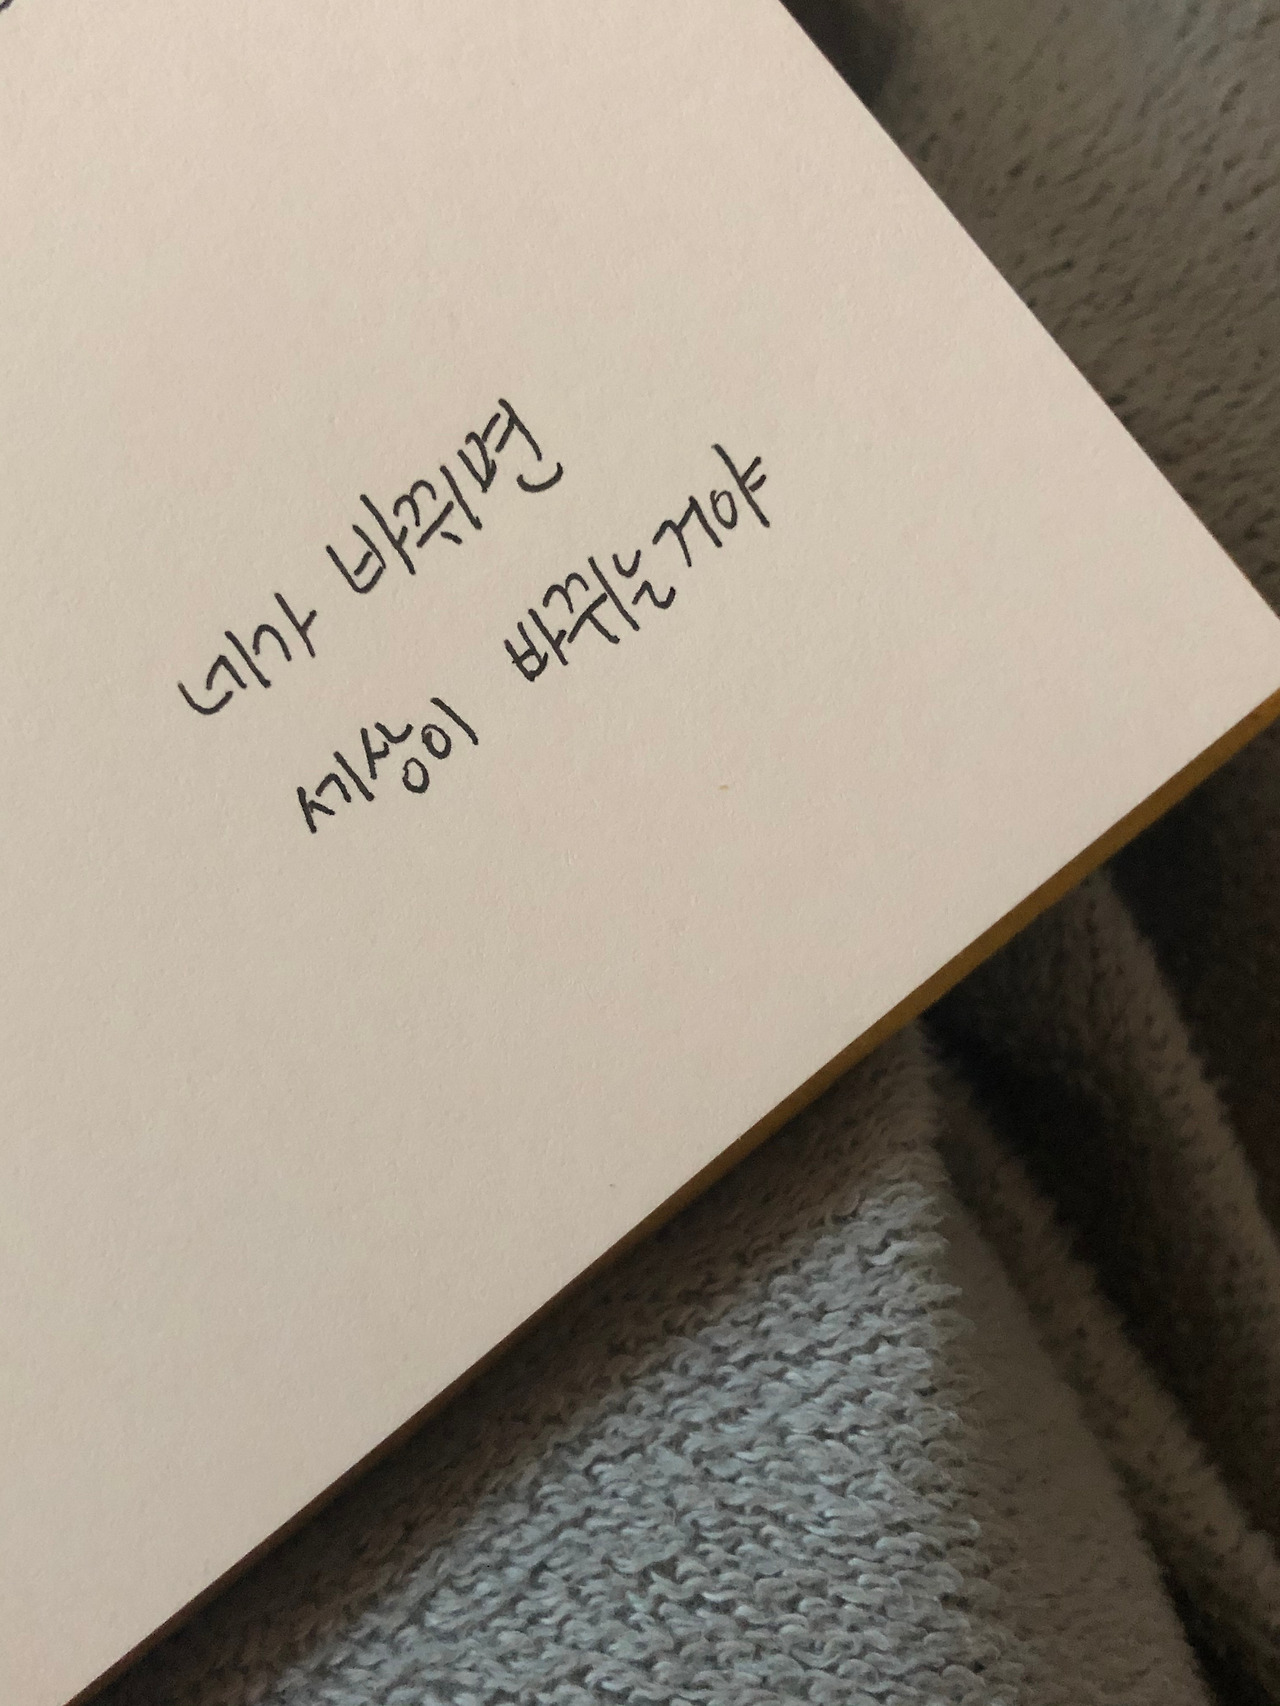 네가 바뀌면
세상이 바뀌는거야